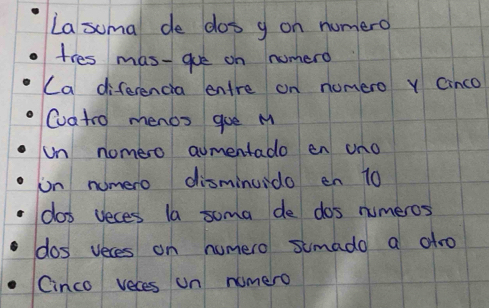 • La suma de dos y on numero
• tres mas-que on numero
• La diferencia entre on numero y cinco
• Cuatro menos que M
• un nomero aumentado en uno
• un numero disminuido en 10
• dos veces la suma de dos numeros
• dos veces on numero sumado a otro
• Cinco veces un numero